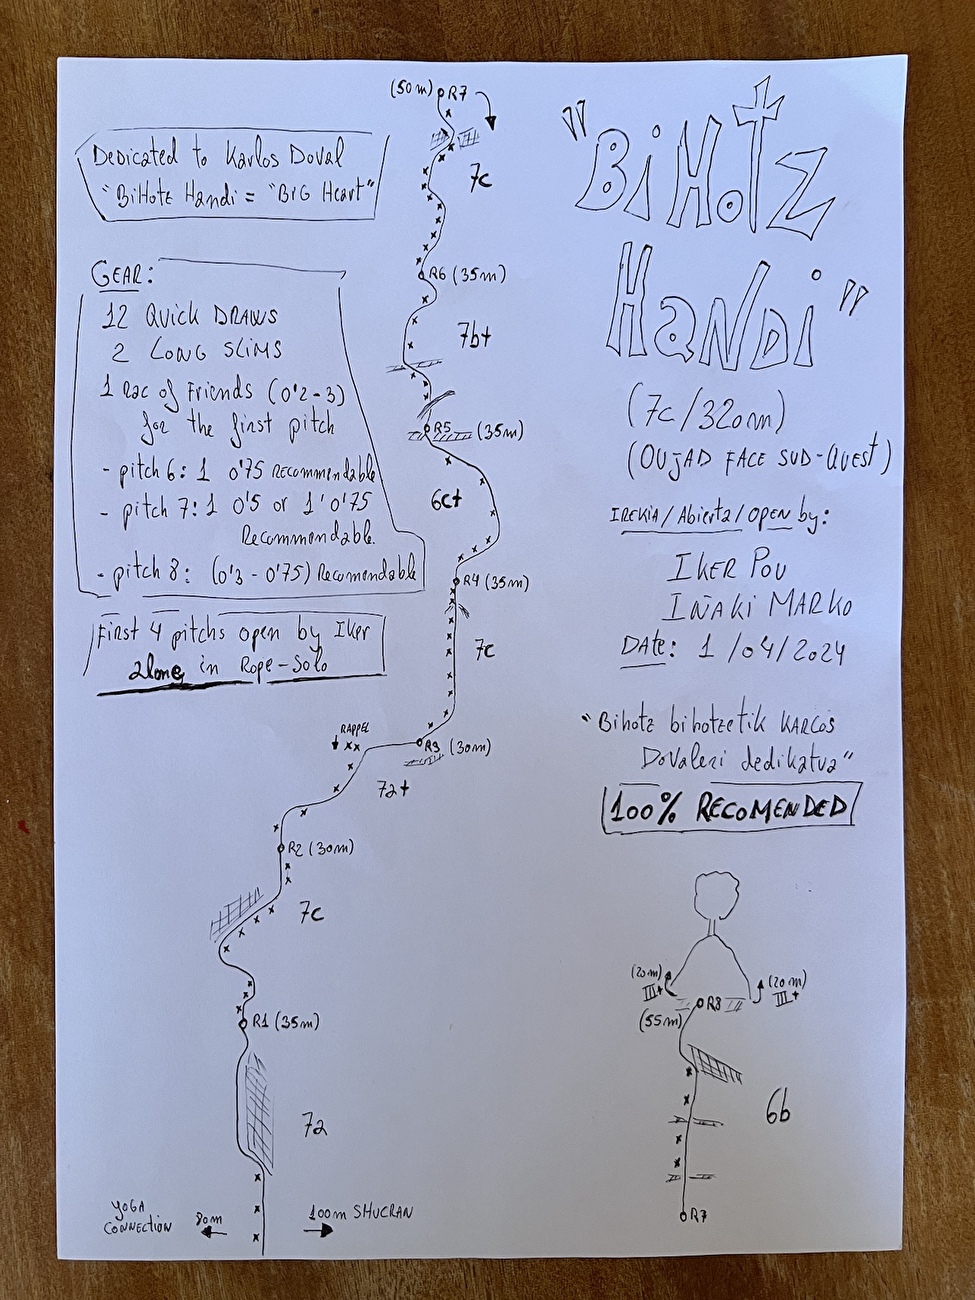 Dedicated to Karlos Doval
"BiHotz Handi = "BIG Heart"
GEAR:
12 Quick DRAWS
2 LONG SLIMS
1 Rac of Friends (0'2-3)
for the first pitch
- pitch 6: 1 0'75 RECOMMENDABLE
- pitch 7: 1 0'5 or 1 0'75
Recommendable.
- pitch 8: (0'3 - 0'75) Recomendable
First 4 pitchs open by Iker
alone, in Rope-Solo
(50m) R7
7c
R6 (35m)
7b+
R5 (35m)
6c+
R4 (35m)
7c
RAPPEL
R3 (30m)
7a+
R2 (30m)
7c
R1 (35m)
7a
YOGA
CONNECTION
80m
100m SHUCRAN
"BiHotz
HaNDi"
(7c/320m)
(OUJAD FACE SUD-QUEST)
IREKIA/Abierta/OPEN by:
IKER POU
IÑAKI MARKO
DAte: 1/04/2024
"Bihotz bihotzetik KARLOS
DoValeri dedikatua"
100% RECOMENDED
(20m)
III+
(20m)
III+
R8
(55m)
6b
R7